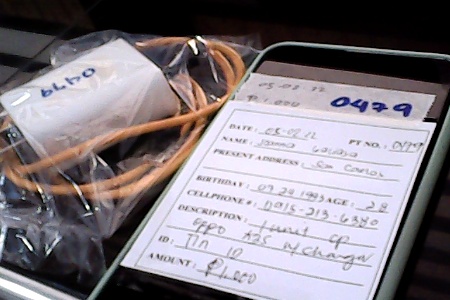 0479
03-02-22
₱1,000
0479
DATE: 03-02-22 PT NO.: 0479
NAME: Joanna
PRESENT ADDRESS: San Carlos
BIRTHDAY: 09-24-1993 AGE: 28
CELLPHONE #: 0915-213-6380
DESCRIPTION: 1 unit cp
oppo A3S w/ charger
ID: TIN ID
AMOUNT: ₱1,000